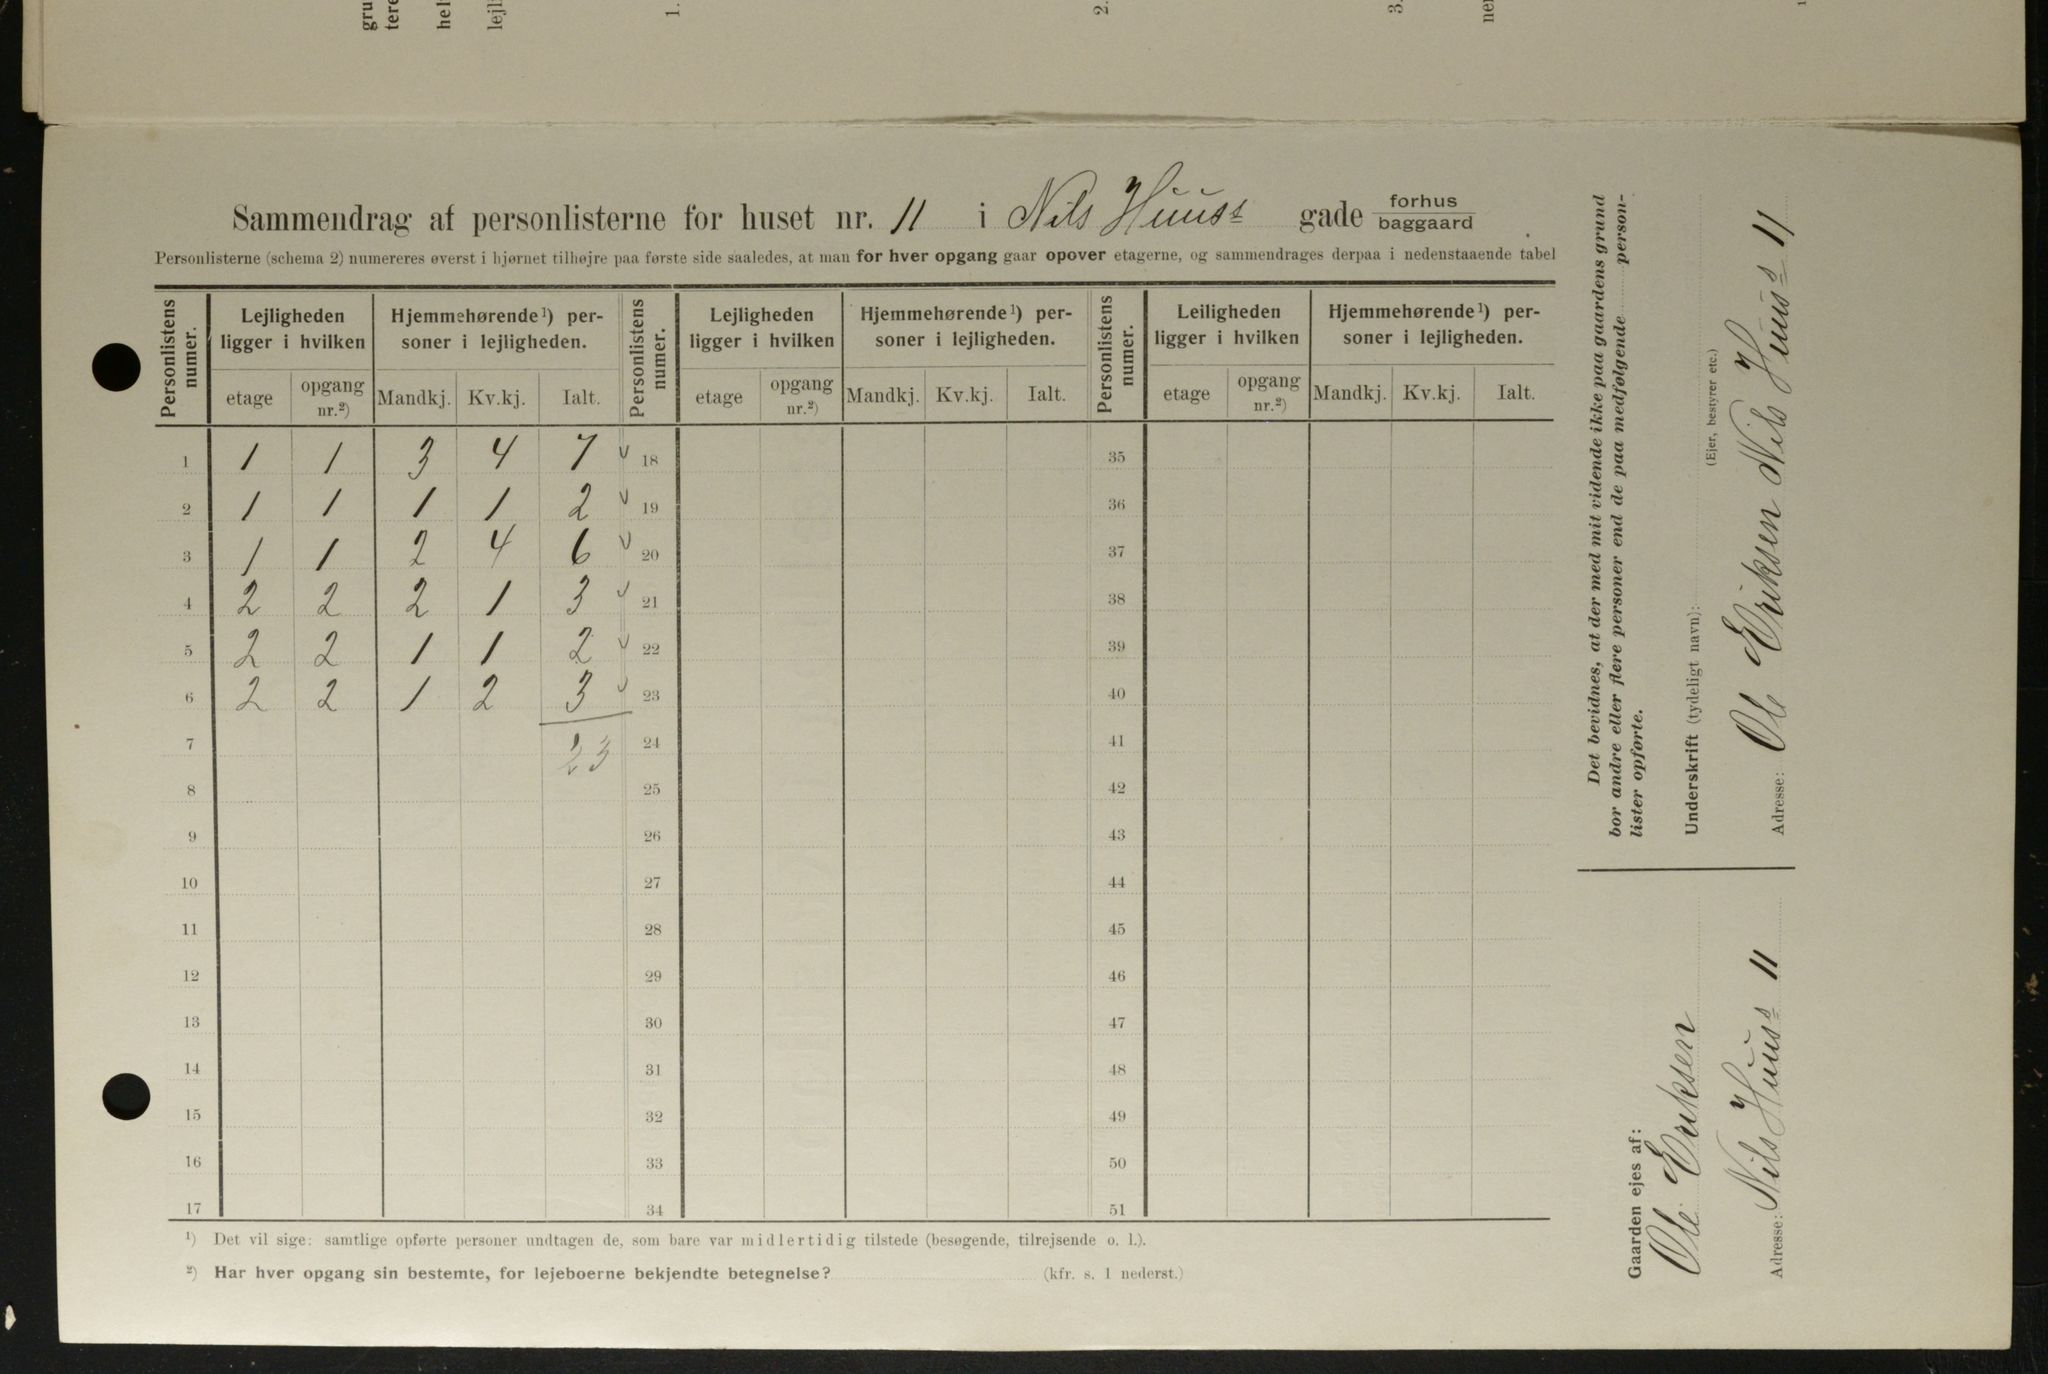 Sammendrag af personlisterne for huset nr. 11 i Nils Huus's gade forhus baggaard
Personlisterne (schema 2) numereres øverst i hjørnet tilhøjre paa første side saaledes, at man for hver opgang gaar opover etagerne, og sammendrages derpaa i nedenstaaende tabel
Personlistens numer. Lejligheden ligger i hvilken Hjemmehørende¹) personer i lejligheden. Personlistens numer. Lejligheden ligger i hvilken Hjemmehørende¹) personer i lejligheden. Personlistens numer. Leiligheden ligger i hvilken Hjemmehørende¹) personer i lejligheden.
etage opgang nr.²) Mandkj. Kv.kj. Ialt. etage opgang nr.²) Mandkj. Kv.kj. Ialt. etage opgang nr.²) Mandkj. Kv.kj. Ialt.
1 1 1 3 4 7 18 35
2 1 1 1 1 2 19 36
3 1 1 2 4 6 20 37
4 2 2 2 1 3 21 38
5 2 2 1 1 2 22 39
6 2 2 1 2 3 23 40
7 23 24 41
8 25 42
9 26 43
10 27 44
11 28 45
12 29 46
13 30 47
14 31 48
15 32 49
16 33 50
17 34 51
¹) Det vil sige: samtlige opførte personer undtagen de, som bare var midlertidig tilstede (besøgende, tilrejsende o. l.).
²) Har hver opgang sin bestemte, for lejeboerne bekjendte betegnelse? (kfr. s. 1 nederst.)
Det bevidnes, at der med mit vidende ikke paa gaardens grund
bor andre eller flere personer end de paa medfølgende person-
lister opførte.
Underskrift (tydeligt navn):
(Ejer, bestyrer etc.)
Ole Eriksen Nils Huus's 11
Adresse:
Gaarden ejes af:
Ole Eriksen
Adresse: Nils Huus's 11